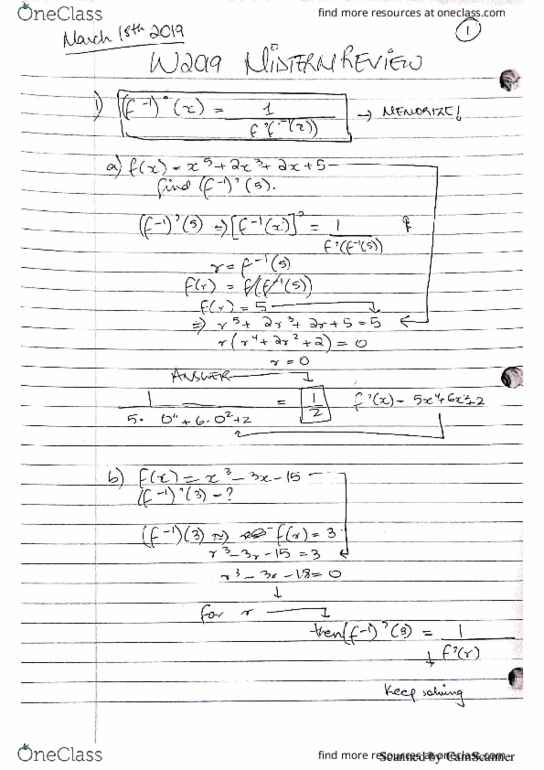 OneClass
find more resources at oneclass.com
March 18th 2019
1
W2019 MIDTERM REVIEW
1) (f-1)'(x) = 1 / f'(f-1(x)) → MEMORIZE!
a) f(x) = x^5 + 2x^3 + 2x + 5
find (f-1)'(5).
(f-1)'(5) ⇒ [f-1(x)]' = 1 / f'(f-1(5))
r = f-1(5)
f(r) = f(f-1(5))
f(r) = 5
⇒ r^5 + 2r^3 + 2r + 5 = 5
r(r^4 + 2r^2 + 2) = 0
r = 0
ANSWER
1 / 5· 0^4 + 6·0^2 + 2 = 1/2 f'(x) = 5x^4 + 6x^2 + 2
b) f(x) = x^3 - 3x - 15
(f-1)'(3) - ?
(f-1)(3) ⇒ f(r) = 3
r^3 - 3r - 15 = 3
r^3 - 3r - 18 = 0
↓
for r
then (f-1)'(3) = 1 / f'(r)
↓
keep solving
OneClass
find more resources at oneclass.com
Scanned by CamScanner